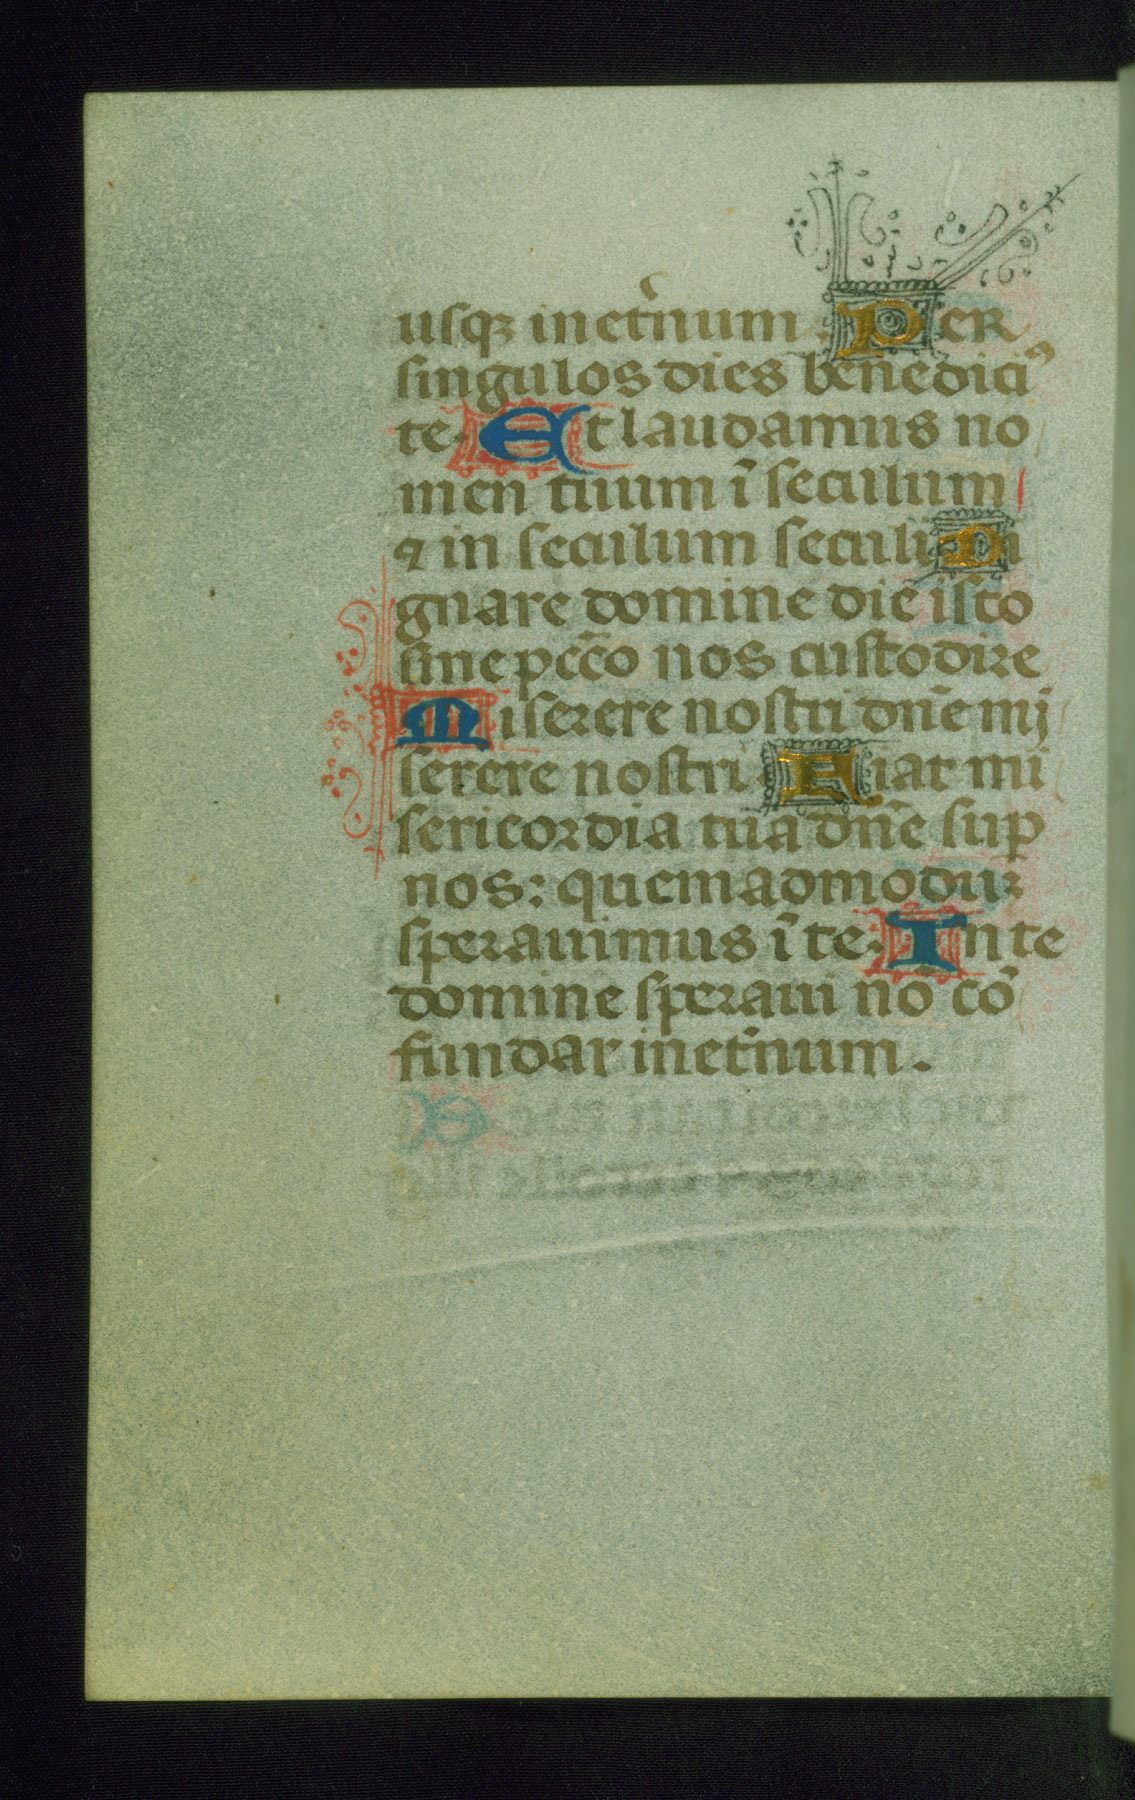 usqz inet̃num. Per
singulos dies benedici⁹
te. Et laudamus no
men tuum ĩ seculum
⁊ in seculum seculi. Di
gnare domine die isto
sine pcc̃o nos custodire
Miserere nostri dñe mi
serere nostri. Fiat mi
sericordia tua dñe sup
nos: quemadmodũ
sperauimus ĩ te. In te
domine speraui nõ cõ
fundar inet̃num.